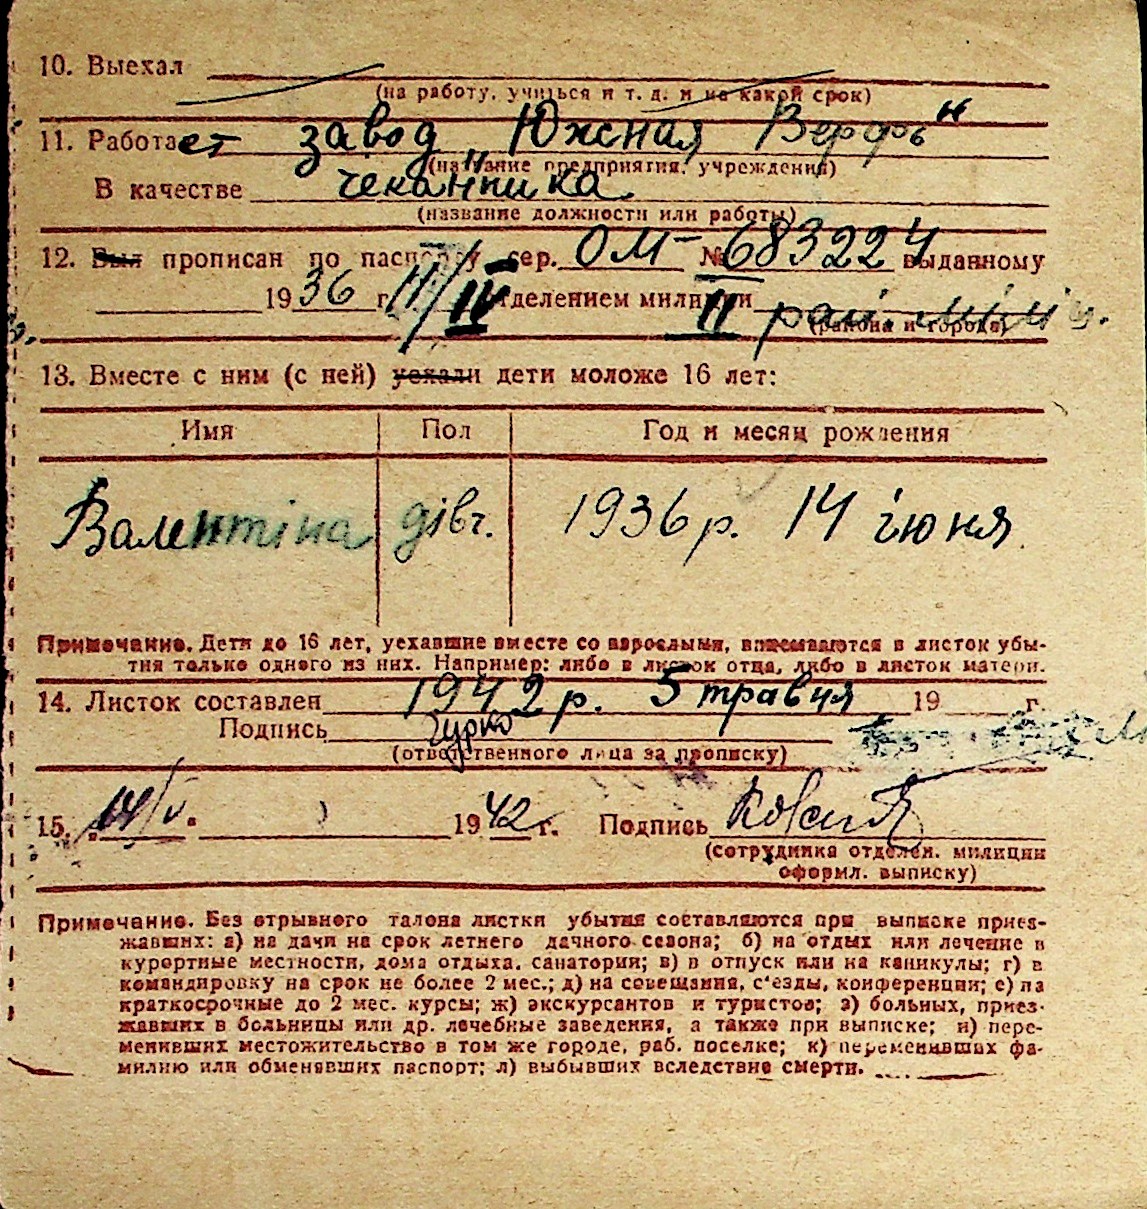 10. Выехал
(на работу, учиться и т. д. и на какой срок)
11. Работает завод „Южная Верфь"
(название предприятия, учреждения)
В качестве чеканщика
(название должности или работы)
12. Был прописан по паспорту сер. ОМ – № 683224 выданному
1936 г. 11/IV отделением милиции II рай. міліц.
(района и города)
13. Вместе с ним (с ней) уехали дети моложе 16 лет:
Имя Пол Год и месяц рождения
Валентіна дівч. 1936 р. 14 іюня
Примечание. Дети до 16 лет, уехавшие вместе со взрослыми, вписываются в листок убы-
тия только одного из них. Например: либо в листок отца, либо в листок матери.
14. Листок составлен 1942 р. 5 травня 19 г.
Подпись Гурко
(ответственного лица за прописку)
15. „14/V" 1942 г. Подпись
(сотрудника отделен. милиции
оформл. выписку)
Примечание. Без отрывного талона листки убытия составляются при выписке приез-
жавших: а) на дачи на срок летнего дачного сезона; б) на отдых или лечение в
курортные местности, дома отдыха, санатории; в) в отпуск или на каникулы; г) в
командировку на срок не более 2 мес.; д) на совещания, с'езды, конференции; е) на
краткосрочные до 2 мес. курсы; ж) экскурсантов и туристов; з) больных, приез-
жавших в больницы или др. лечебные заведения, а также при выписке; и) пере-
менивших местожительство в том же городе, раб. поселке; к) переменивших фа-
милию или обменявших паспорт; л) выбывших вследствие смерти.